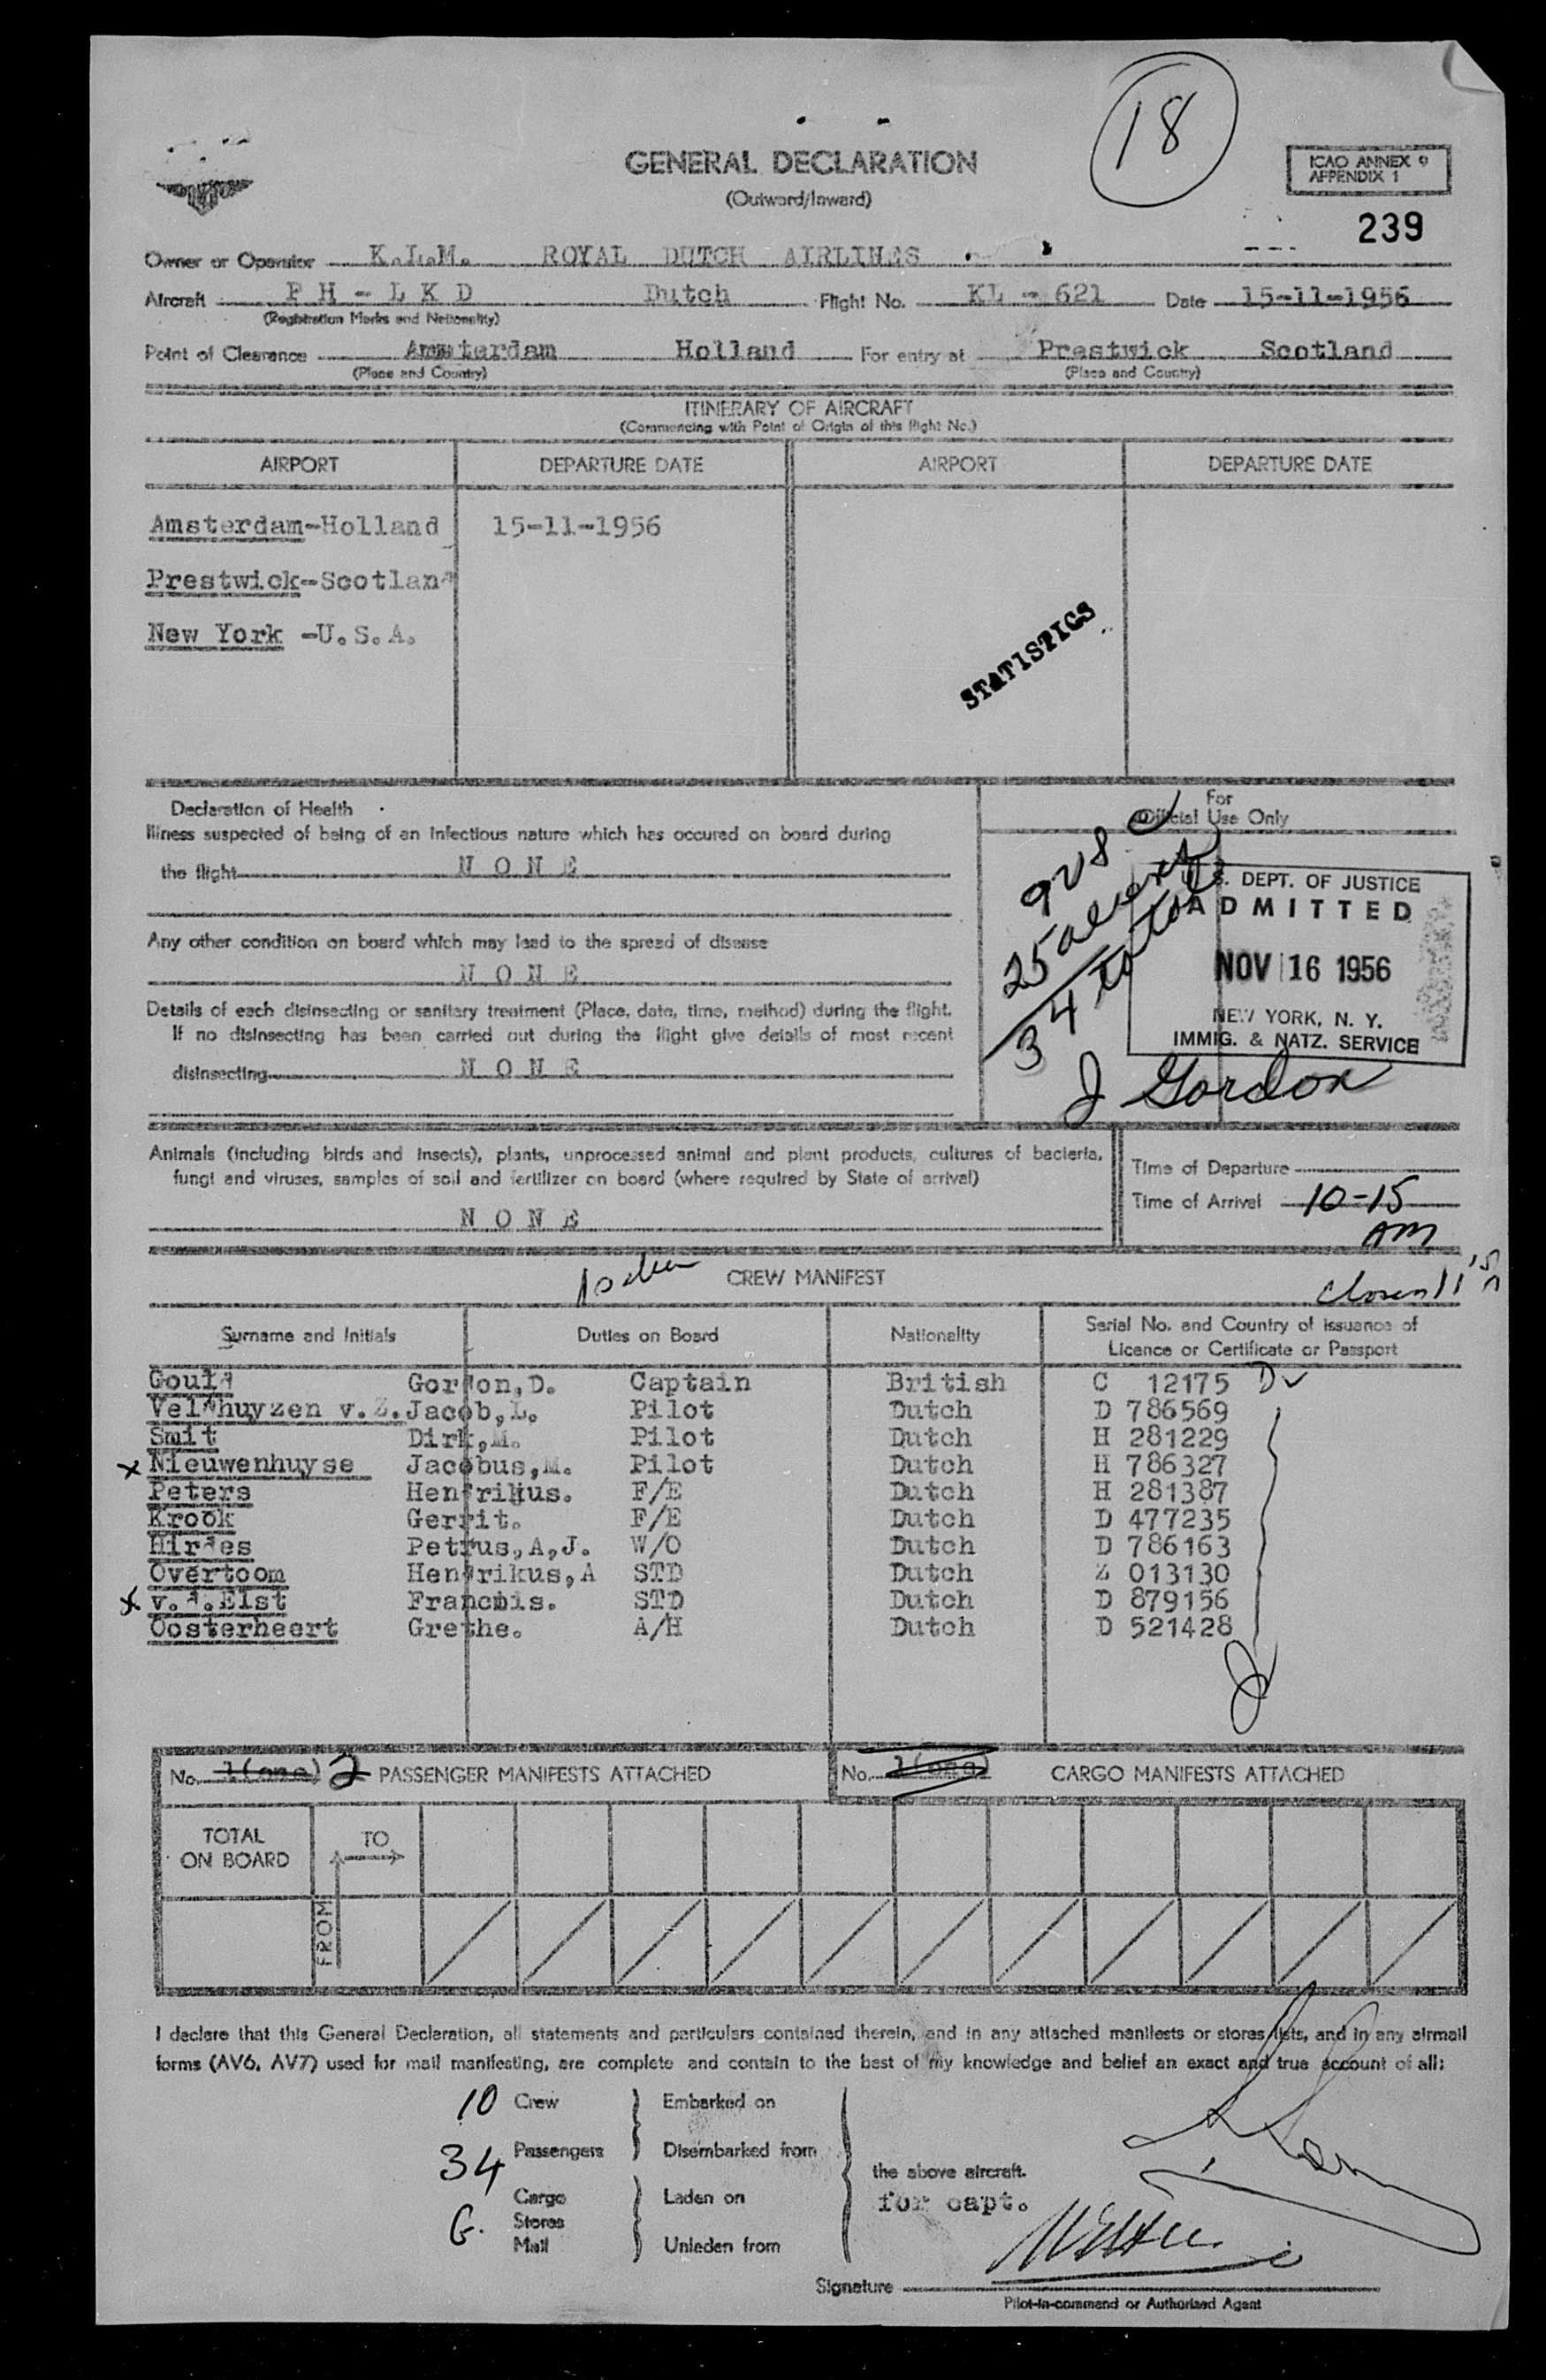 18
GENERAL DECLARATION
(Outward/Inward)
ICAO ANNEX 9
APPENDIX 1
239
Owner or Operator K.L.M. ROYAL DUTCH AIRLINES
Aircraft P H - L K D Dutch Flight No. KL - 621 Date 15-11-1956
(Registration Marks and Nationality)
Point of Clearance Amsterdam Holland For entry at Prestwick Scotland
(Place and Country) (Place and Country)
ITINERARY OF AIRCRAFT
(Commencing with Point of Origin of this flight No.)
AIRPORT DEPARTURE DATE AIRPORT DEPARTURE DATE
Amsterdam-Holland 15-11-1956
Prestwick-Scotland
New York -U.S.A.
STATISTICS
Declaration of Health
Illness suspected of being of an infectious nature which has occured on board during
the flight N O N E
Any other condition on board which may lead to the spread of disease
N O N E
Details of each disinsecting or sanitary treatment (Place, date, time, method) during the flight.
If no disinsecting has been carried out during the flight give details of most recent
disinsecting N O N E
For
Official Use Only
9 US C
25 aliens
34 total
U.S. DEPT. OF JUSTICE
ADMITTED
NOV 16 1956
NEW YORK, N. Y.
IMMIG. & NATZ. SERVICE
J Gordon
Animals (including birds and insects), plants, unprocessed animal and plant products, cultures of bacteria,
fungi and viruses, samples of soil and fertilizer on board (where required by State of arrival)
N O N E
Time of Departure
Time of Arrival 10-15
AM
CREW MANIFEST
Surname and Initials Duties on Board Nationality Serial No. and Country of Issuance of
Licence or Certificate or Passport
Gould Gordon,D. Captain British C 12175 D
Veldhuyzen v.Z. Jacob,L. Pilot Dutch D 786569
Smit Dirk,M. Pilot Dutch H 281229
x Nieuwenhuyse Jacobus,M. Pilot Dutch H 786327
Peters Hendrikus. F/E Dutch H 281387
Krook Gerrit. F/E Dutch D 477235
Hirdes Petrus,A,J. W/O Dutch D 786163
Overtoom Hendrikus,A STD Dutch Z 013130
x v.d.Elst Francois. STD Dutch D 879156
Oosterheert Grethe. A/H Dutch D 521428
No. 1(one) 2 PASSENGER MANIFESTS ATTACHED No. 1(one) CARGO MANIFESTS ATTACHED
TOTAL
ON BOARD
TO
FROM
I declare that this General Declaration, all statements and particulars contained therein, and in any attached manifests or stores lists, and in any airmail
forms (AV6, AV7) used for mail manifesting, are complete and contain to the best of my knowledge and belief an exact and true account of all:
10 Crew Embarked on
34 Passengers Disembarked from
the above aircraft.
Cargo Laden on
for capt.
G. Stores
Mail Unladen from
Signature
Pilot-in-command or Authorised Agent